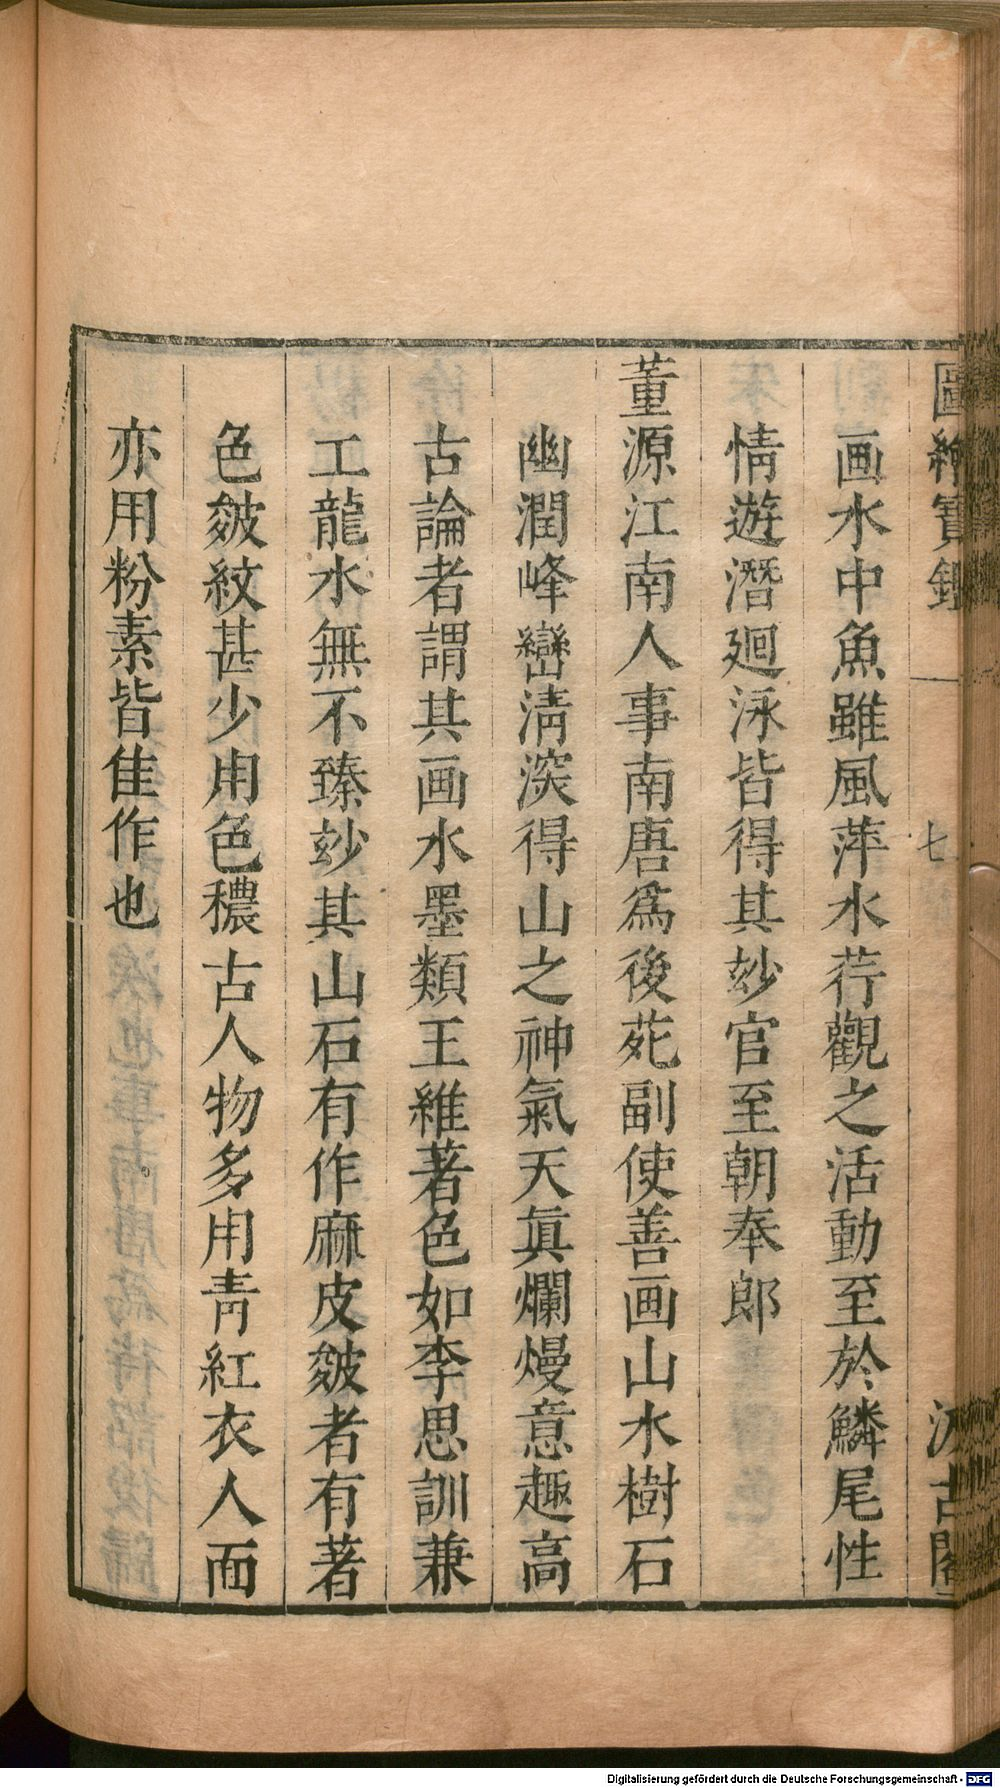 圖繪寶鑑
七
汲古閣
画水中魚雖風萍水荇觀之活動至於鱗尾性
情遊潛廻泳皆得其玅官至朝奉郎
董源江南人事南唐爲後苑副使善画山水樹石
幽潤峰巒淸深得山之神氣天眞爛熳意趣高
古論者謂其画水墨類王維著色如李思訓兼
工龍水無不臻玅其山石有作麻皮皴者有著
色皴紋甚少用色穠古人物多用靑紅衣人面
亦用粉素皆佳作也
Digitalisierung gefördert durch die Deutsche Forschungsgemeinschaft - DFG